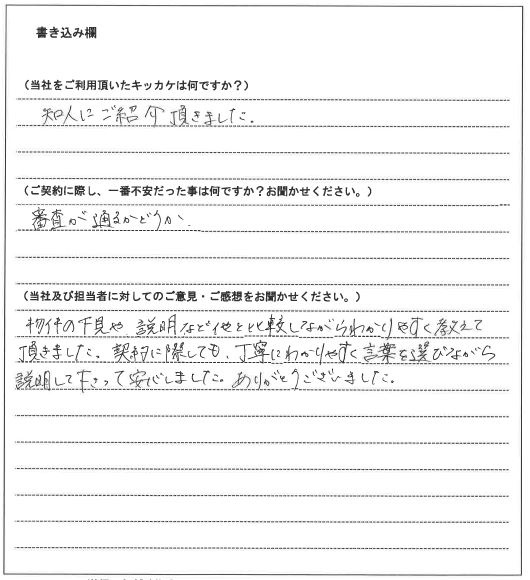 書き込み欄
（当社をご利用頂いたキッカケは何ですか？）
知人にご紹介頂きました。
（ご契約に際し、一番不安だった事は何ですか？お聞かせください。）
審査が通るかどうか、
（当社及び担当者に対してのご意見・ご感想をお聞かせください。）
物件の下見や、説明など他と比較しながらわかりやすく教えて
頂きました。契約に際しても、丁寧にわかりやすく言葉を選びながら
説明して下さって安心しました。ありがとうございました。